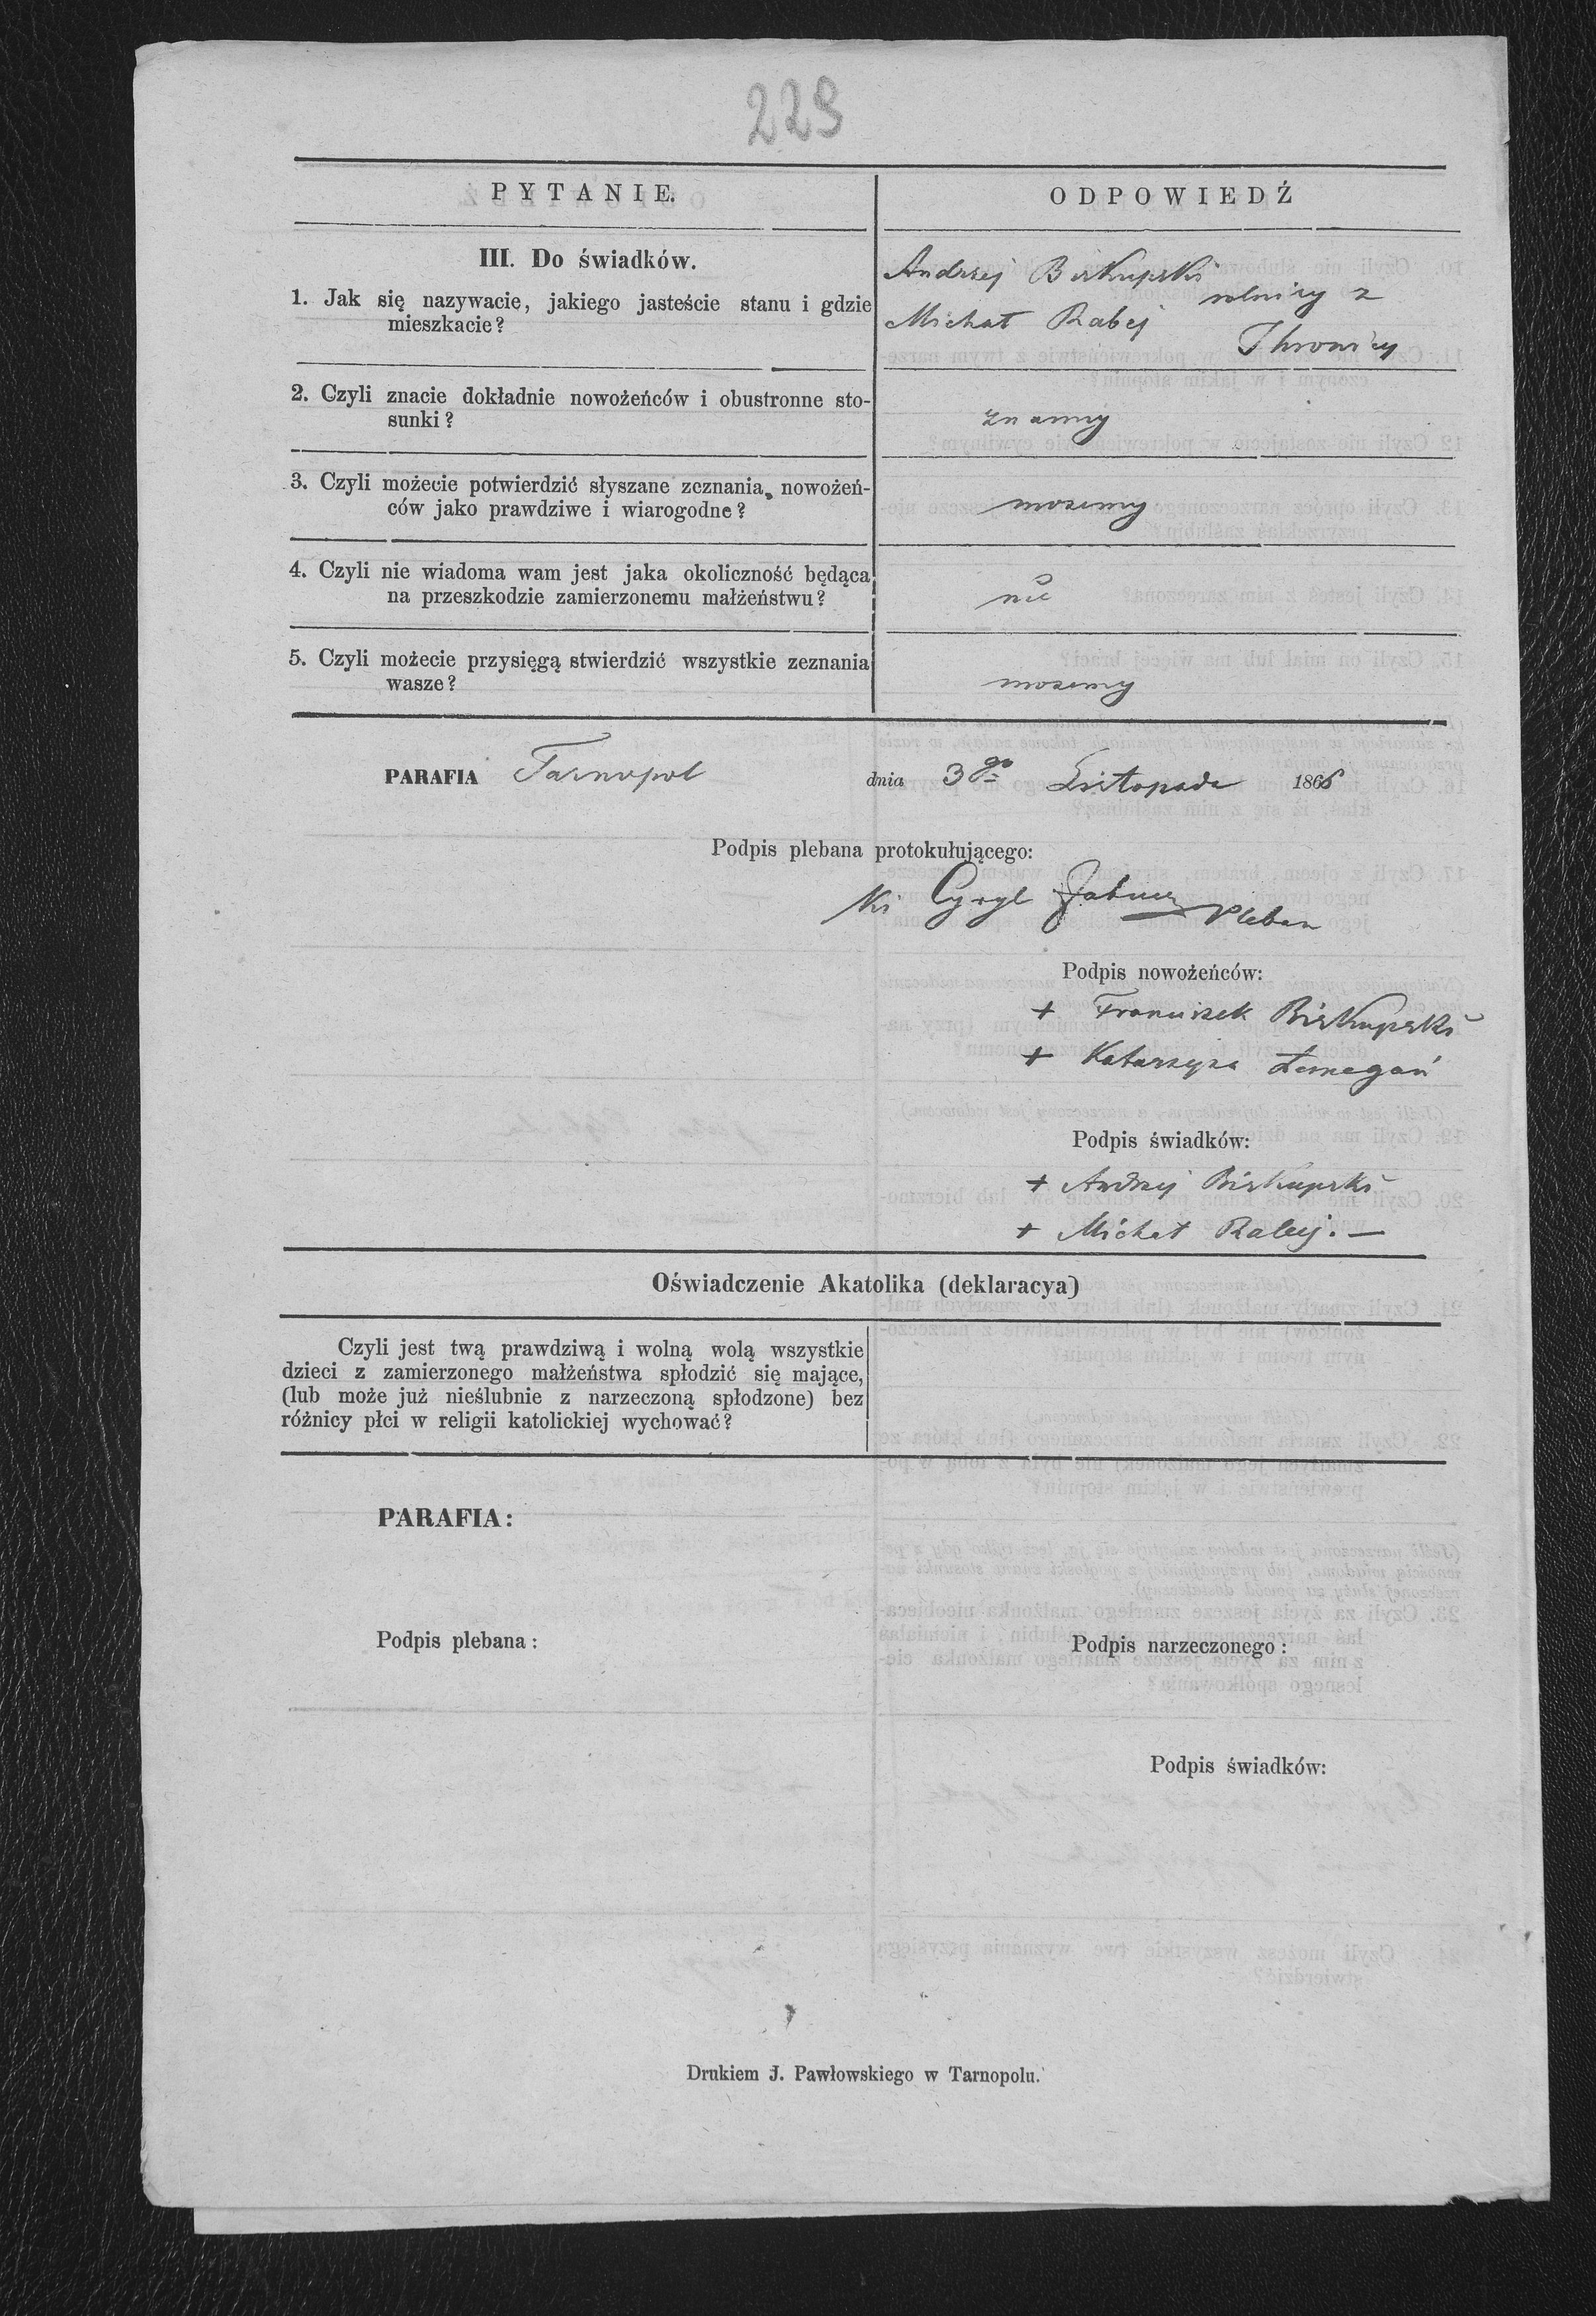 229
PYTANIE.
ODPOWIEDŹ
III. Do świadków.
1. Jak się nazywacie, jakiego jasteście stanu i gdzie
mieszkacie?
Andrzej Biskupski
rolnicy z
Michał Rabej
2. Czyli znacie dokładnie nowożeńców i obustronne sto-
sunki?
znamy
3. Czyli możecie potwierdzić słyszane zeznania nowożeń-
ców jako prawdziwe i wiarogodne?
mozemy
4. Czyli nie wiadoma wam jest jaka okoliczność będąca
na przeszkodzie zamierzonemu małżeństwu?
nie
5. Czyli możecie przysięgą stwierdzić wszystkie zeznania
wasze?
mozemy
PARAFIA Tarnopol dnia 3go Listopada 186
Podpis plebana protokułującego:
Cyryl Pleban
Podpis nowożeńców:
+ Franciszek Biskupski
+ Katarzyna
Podpis świadków:
+ Andrzej Biskupski
+ Michał Rabej. —
Oświadczenie Akatolika (deklaracya)
Czyli jest twą prawdziwą i wolną wolą wszystkie
dzieci z zamierzonego małżeństwa spłodzić się mające,
(lub może już nieślubnie z narzeczoną spłodzone) bez
różnicy płci w religii katolickiej wychować?
PARAFIA:
Podpis plebana:
Podpis narzeczonego:
Podpis świadków:
Drukiem J. Pawłowskiego w Tarnopolu.